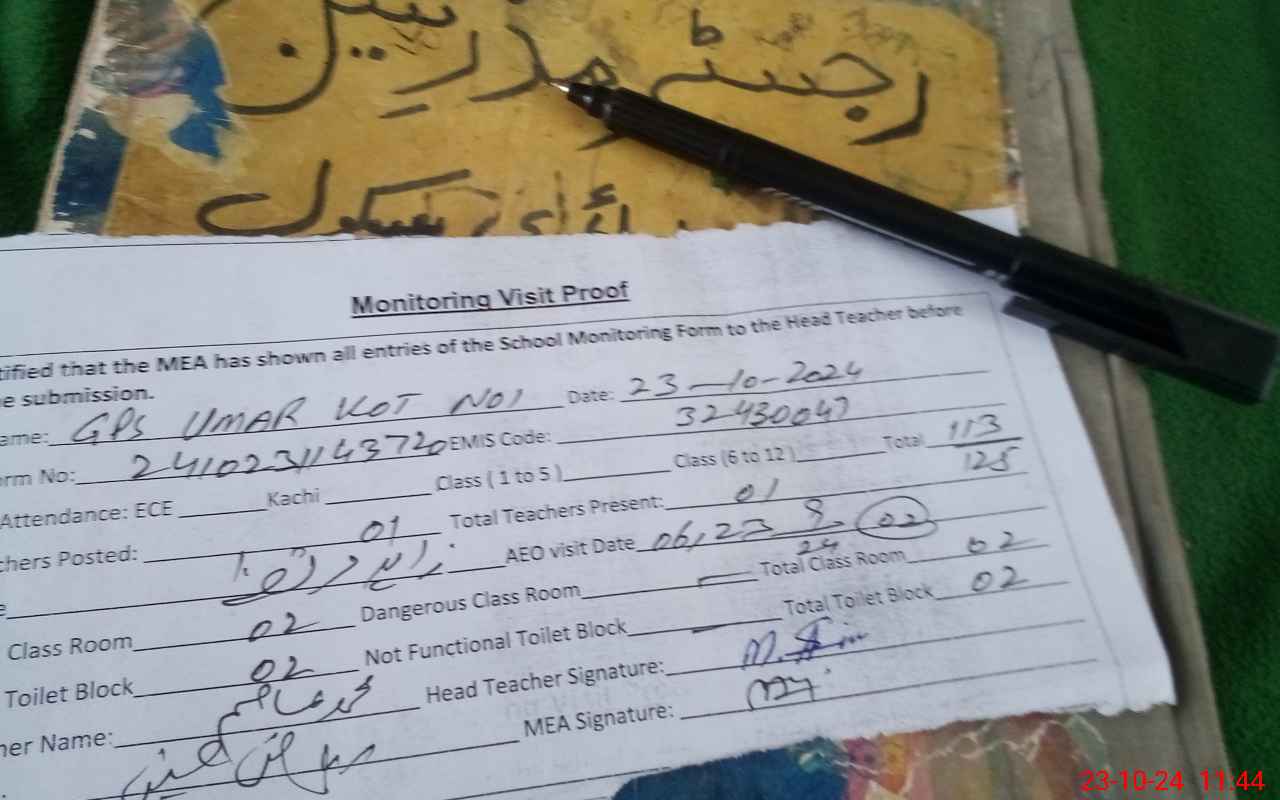 رجسٹر مدرسین
پرائمری سکول
Monitoring Visit Proof
tified that the MEA has shown all entries of the School Monitoring Form to the Head Teacher before
e submission.
ame: GPS UMAR KOT NO1 Date: 23-10-2024
rm No: 2410231143720 EMIS Code: 32430047
Attendance: ECE Kachi Class ( 1 to 5 ) Class (6 to 12 ) Total 113
125
chers Posted: 01 Total Teachers Present: 01
e AEO visit Date 06,23 8 02
24
Class Room 02 Dangerous Class Room — Total Class Room 02
Toilet Block 02 Not Functional Toilet Block — Total Toilet Block 02
her Name: محمد قاسم Head Teacher Signature:
MEA Signature:
23-10-24 11:44